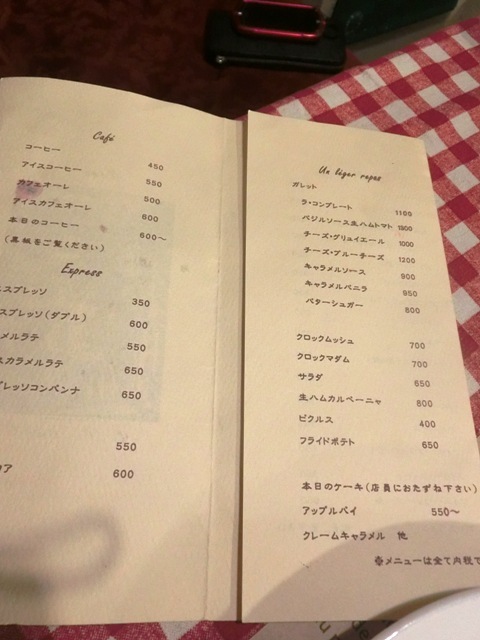 Café
コーヒー 450
アイスコーヒー 550
カフェオーレ 500
アイスカフェオーレ 600
本日のコーヒー 600~
(黒板をご覧ください)
Express
スプレッソ 350
スプレッソ(ダブル) 600
メルラテ 550
スカラメルラテ 650
プレッソコンパンナ 650
550
コア 600
Un léger repas
ガレット
ラ・コンプレート 1100
バジルソース生ハムトマト 1300
チーズ・グリュイエール 1000
チーズ・ブルーチーズ 1200
キャラメルソース 900
キャラメルバニラ 950
バターシュガー 800
クロックムッシュ 700
クロックマダム 700
サラダ 650
生ハムカルベーニャ 800
ピクルス 400
フライドポテト 650
本日のケーキ(店員におたずね下さい)
アップルパイ 550~
クレームキャラメル 他
※メニューは全て内税で